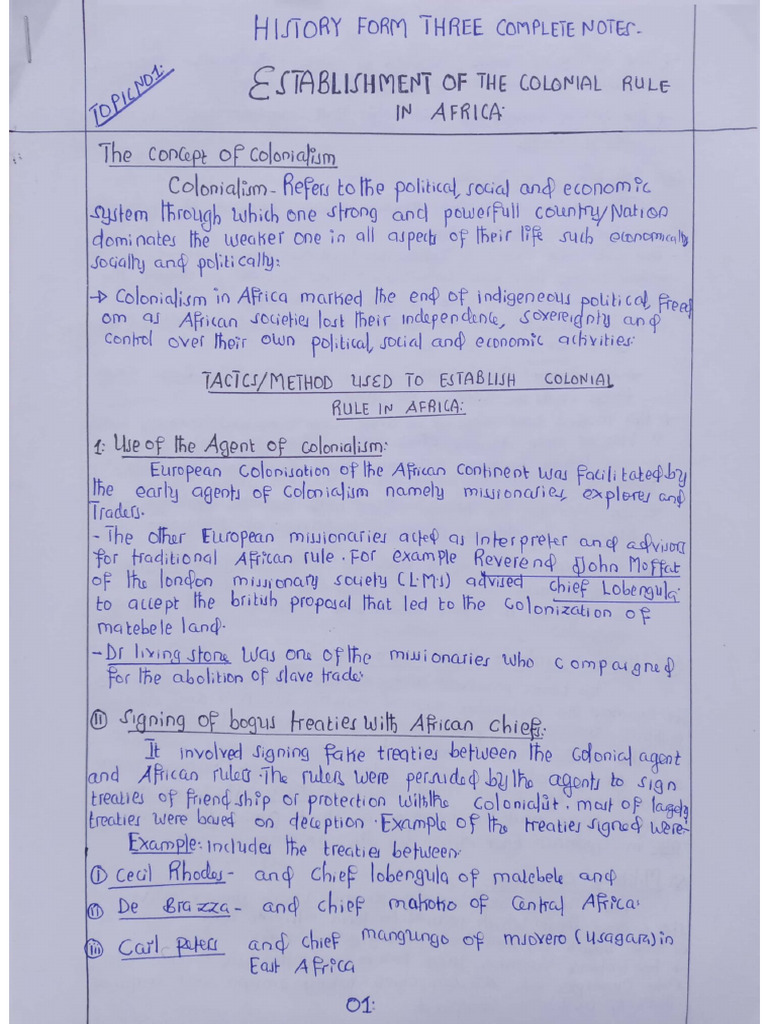 HISTORY FORM THREE COMPLETE NOTES.
TOPIC NO1:
ESTABLISHMENT OF THE COLONIAL RULE
IN AFRICA:
The concept of colonialism
Colonialism - Refers to the political, social and economic
system through which one strong and powerfull country/Nation
dominates the weaker one in all aspects of their life such economically
socially and politically:
→ Colonialism in Africa marked the end of indigeneous political freed
om as African societies lost their independence, sovereignty and
control over their own political, social and economic activities:
TACTCS/METHOD USED TO ESTABLISH COLONIAL
RULE IN AFRICA:
1: Use of the Agent of colonialism:
European Colonisation of the African continent was facilitated by
the early agents of colonialism namely missionaries, explores and
Traders.
- The other European missionaries acted as Interpreter and advisors
for traditional African rule. For example Reverend John Moffat
of the london missionary society (L.M.S) advised chief Lobengula
to accept the british proposal that led to the colonization of
matebele land.
- Dr living stone was one of the missionaries who compaigned
for the abolition of slave trade.
(ii) Signing of bogus treaties with African chiefs.
It involved signing fake treaties between the colonial agent
and African rulers. The rulers were persuded by the agents to sign
treaties of friendship or protection with the colonialist. most of
treaties were based on deception. Example of the treaties signed were-
Example: includes the treaties between
(i) Cecil Rhodes - and chief lobengula of matebele and
(ii) De Brazza - and chief makoko of Central Africa:
(iii) Carl peters and chief mangungo of msovero (usagara) in
East Africa
01: